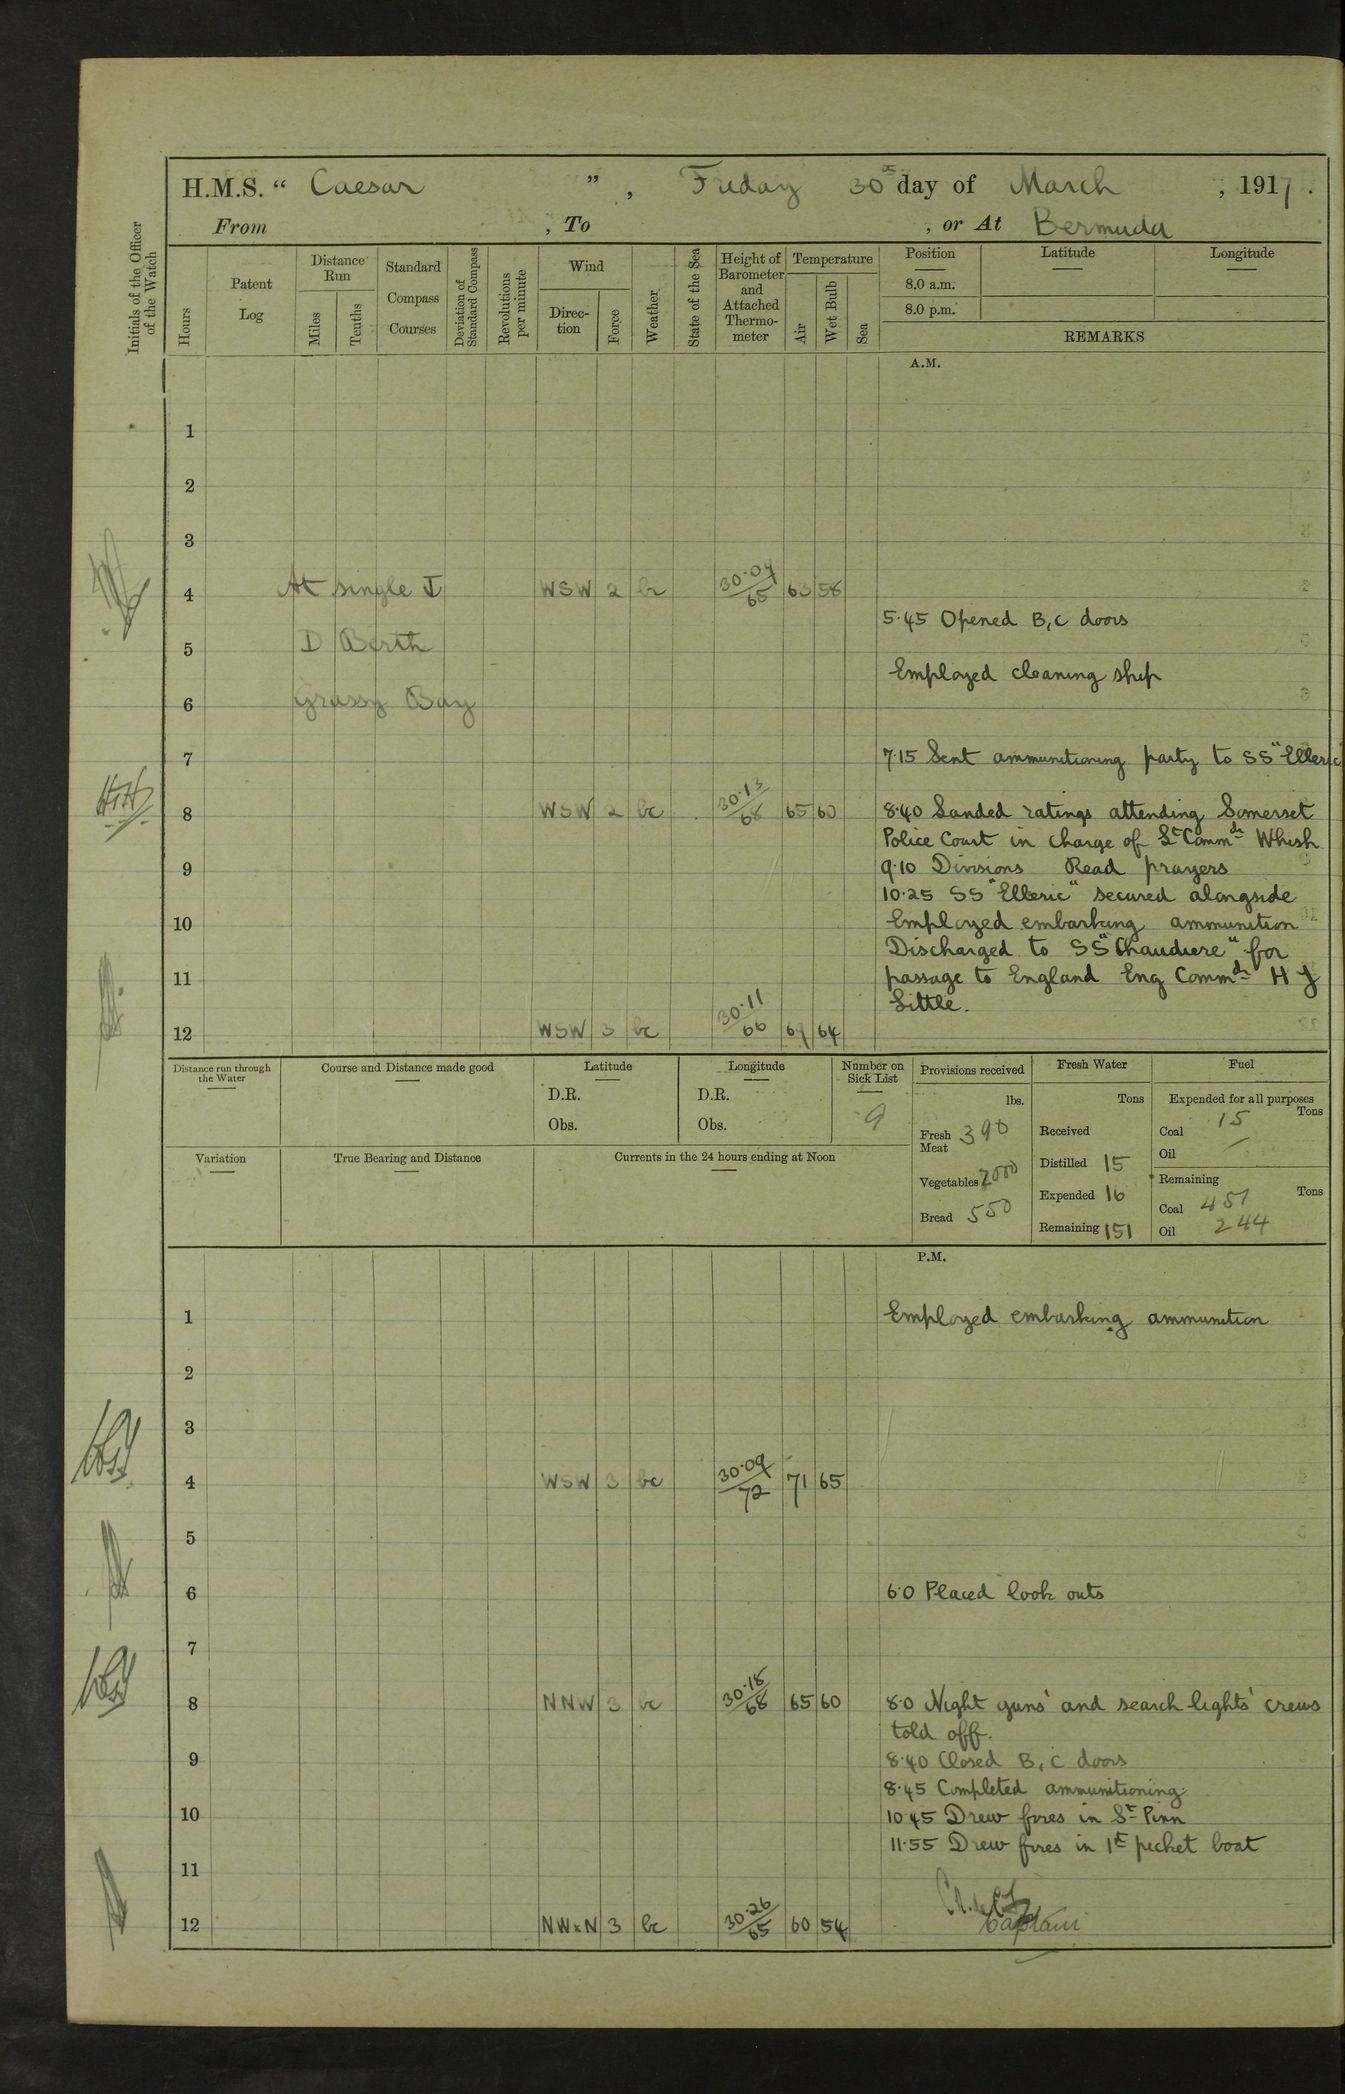 H.M.S. “ Caesar ” , Friday 30th day of March , 1917 .
From , To , or At Bermuda
Initials of the Officer of the Watch
Hours
Patent Log
Distance Run
Miles
Tenths
Standard Compass Courses
Deviation of Standard Compass
Revolutions per minute
Wind
Direc- tion
Force
Weather
State of the Sea
Height of Barometer and Attached Thermo- meter
Temperature
Air
Wet Bulb
Sea
Position
8.0 a.m.
8.0 p.m.
Latitude
Longitude
REMARKS
A.M.
1
2
3
4 At single WSW 2 bc 30.09/65 63 58
5.45 Opened B, C doors
5 D Berth
Employed cleaning ship
6 Grassy Bay
7 7.15 Sent ammunitioning party to SS "Elleric"
8 WSW 2 bc 30.13/68 65 60 8.40 Landed ratings attending Somerset
Police Court in charge of Lt Commdr Whish
9 9.10 Divisions Read prayers
10.25 SS "Elleric" secured alongside
10 Employed embarking ammunition
Discharged to SS "Chaudiere" for
11 passage to England Eng Commdr H J
Little.
12 WSW 3 bc 30.11/66 69 64
Distance run through the Water
Course and Distance made good
Latitude
D.R.
Obs.
Longitude
D.R.
Obs.
Number on Sick List
9
Provisions received
lbs.
Fresh Meat 390
Vegetables 2000
Bread 550
Fresh Water
Tons
Received
Distilled 15
Expended 16
Remaining 151
Fuel
Expended for all purposes
Tons
Coal 15
Oil —
Remaining
Tons
Coal 451
Oil 244
Variation
True Bearing and Distance
Currents in the 24 hours ending at Noon
P.M.
1 Employed embarking ammunition
2
3
4 WSW 3 bc 30.09/72 71 65
5
6 6.0 Placed look outs
7
8 NNW 3 bc 30.18/68 65 60 8.0 Night guns' and search lights' crews
told off.
9 8.40 Closed B, C doors
8.45 Completed ammunitioning
10 10.45 Drew fires in St Pinn
11.55 Drew fires in 1st picket boat
11
12 NWxN 3 bc 30.26/65 60 54
Captain